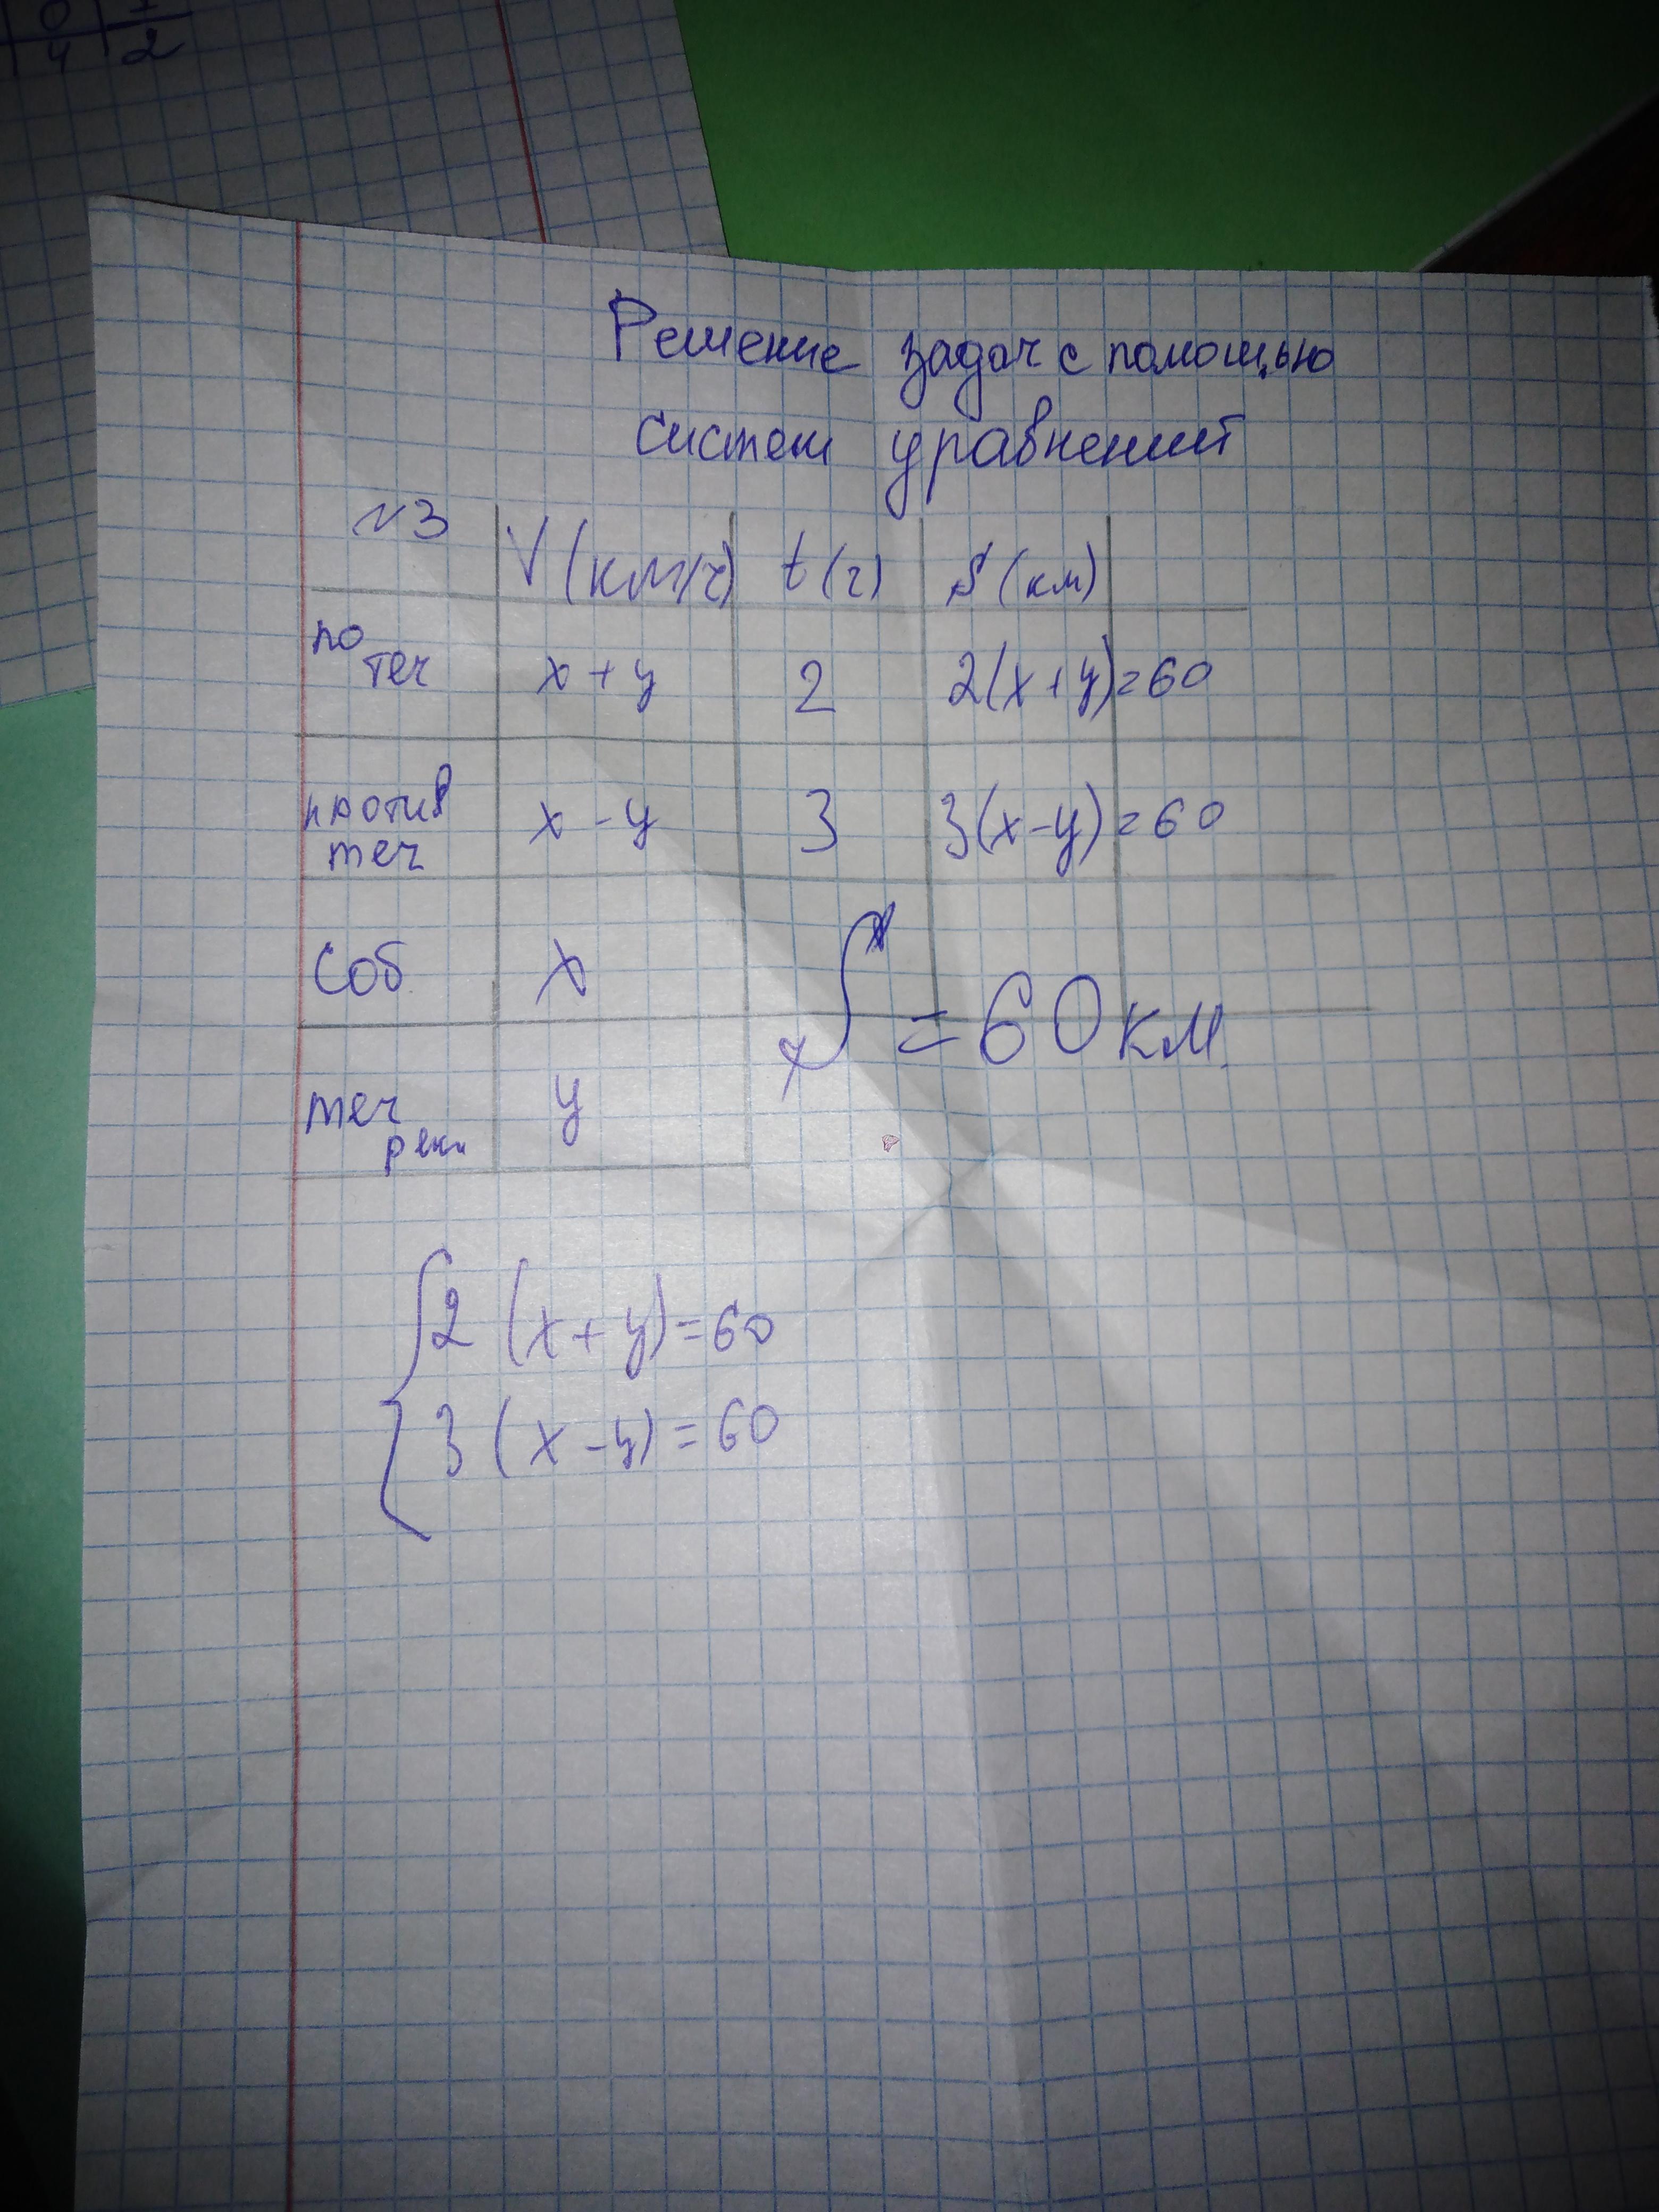 0 1
4 2
Решение задач с помощью
систем уравнений
N3 V(км/ч) t(ч) S(км)
по теч x+y 2 2(x+y)=60
против теч x-y 3 3(x-y)=60
Соб x
S=60км
теч реки y
2(x+y)=60
3(x-y)=60